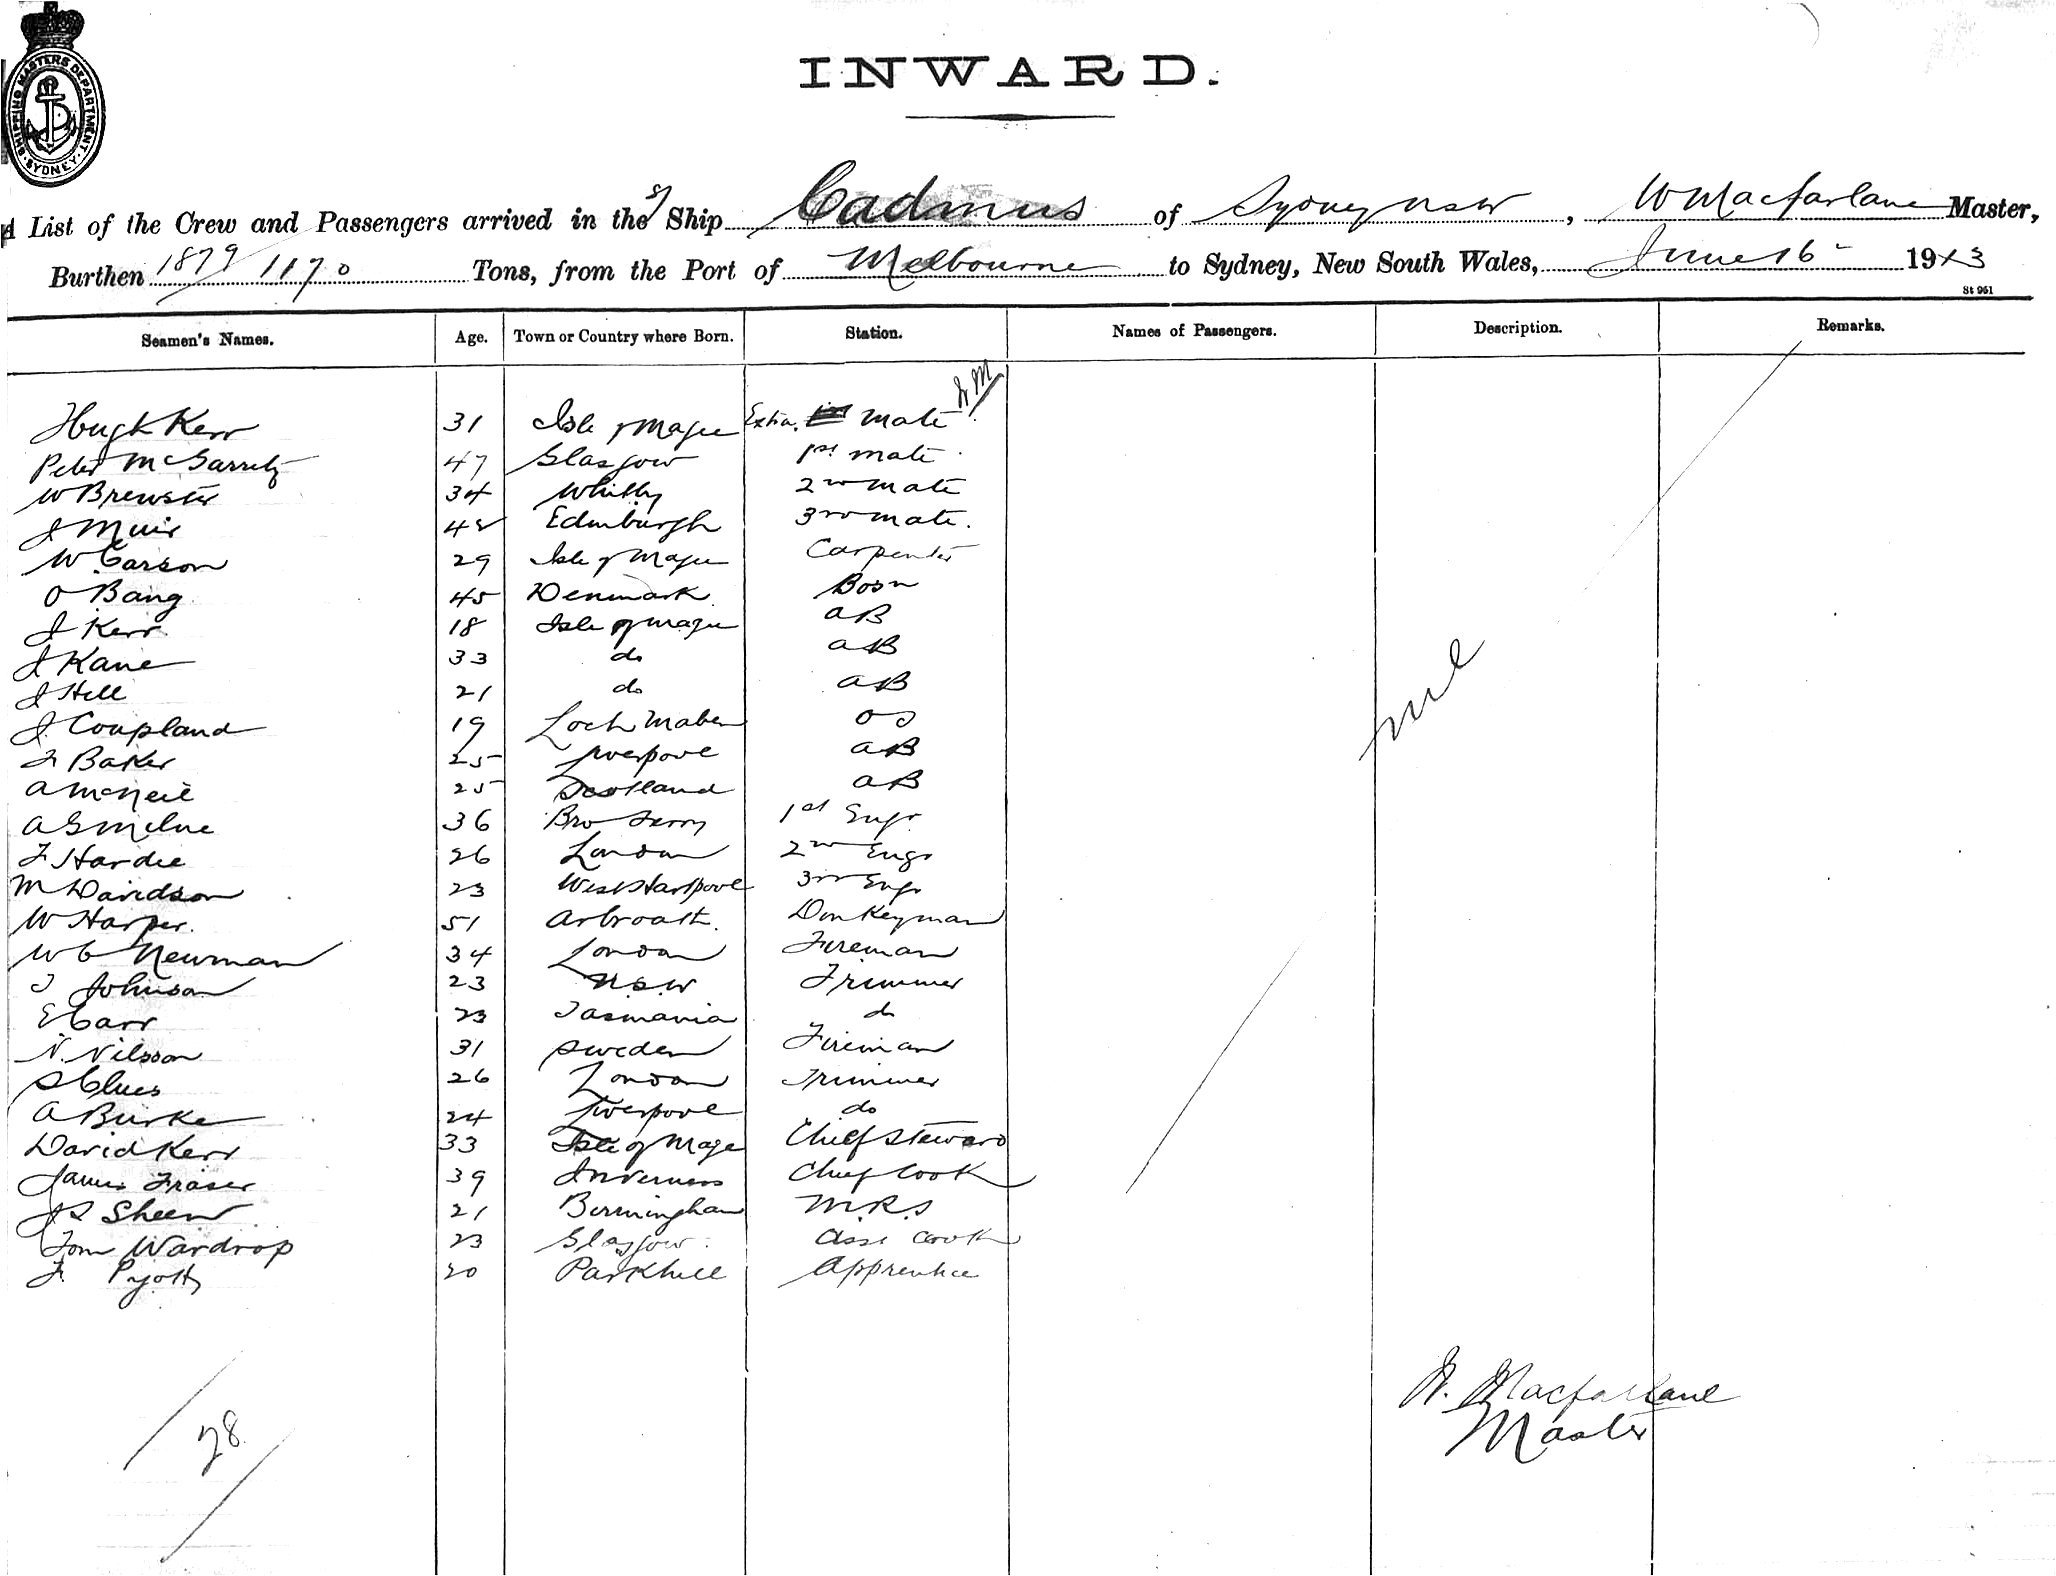 SHIPPING MASTERS DEPARTMENT. SYDNEY.
INWARD.
A List of the Crew and Passengers arrived in the S/ Ship Cadmus of Sydney NSW, W Macfarlane Master,
Burthen 1879/1170 Tons, from the Port of Melbourne to Sydney, New South Wales, June 16 1913
St 961
Seamen's Names. Age. Town or Country where Born. Station. Names of Passengers. Description. Remarks.
Hugh Kerr 31 Isle of Magee Extra Mate
Peter McGarrety 47 Glasgow 1st mate
W Brewster 34 Whitby 2nd mate
J Muir 48 Edinburgh 3rd mate.
W. Carson 29 Isle of Magee Carpenter
O Bang 45 Denmark Bosn
J Kerr 18 Isle of Magee AB
J Kane 33 do AB
J Hill 21 do AB
J. Coupland 19 Loch Maben OS
F Baker 25 Liverpool AB
A McNeil 25 Scotland AB
A G Milne 36 Bro Ferry 1st Engr
F Hardie 26 London 2nd Engr
M Davidson 23 West Hartpool 3rd Engr
W Harper. 51 Arbroath. Donkeyman
W C Newman 34 London Fireman
J Johnson 23 N.S.W Trimmer
E Carr 23 Tasmania do
N. Nilsson 31 Sweden Fireman
S Clues 26 London Trimmer
A Burke 24 Liverpool do
David Kerr 33 Isle of Mage Chief Steward
James Fraser 39 Inverness Chief Cook
J S Sheen 21 Birmingham M.R.S
Tom Wardrop 23 Glasgow Asst Cook
F. Pyott 20 Parkhill Apprentice
nil
W. Macfarlane
Master
28